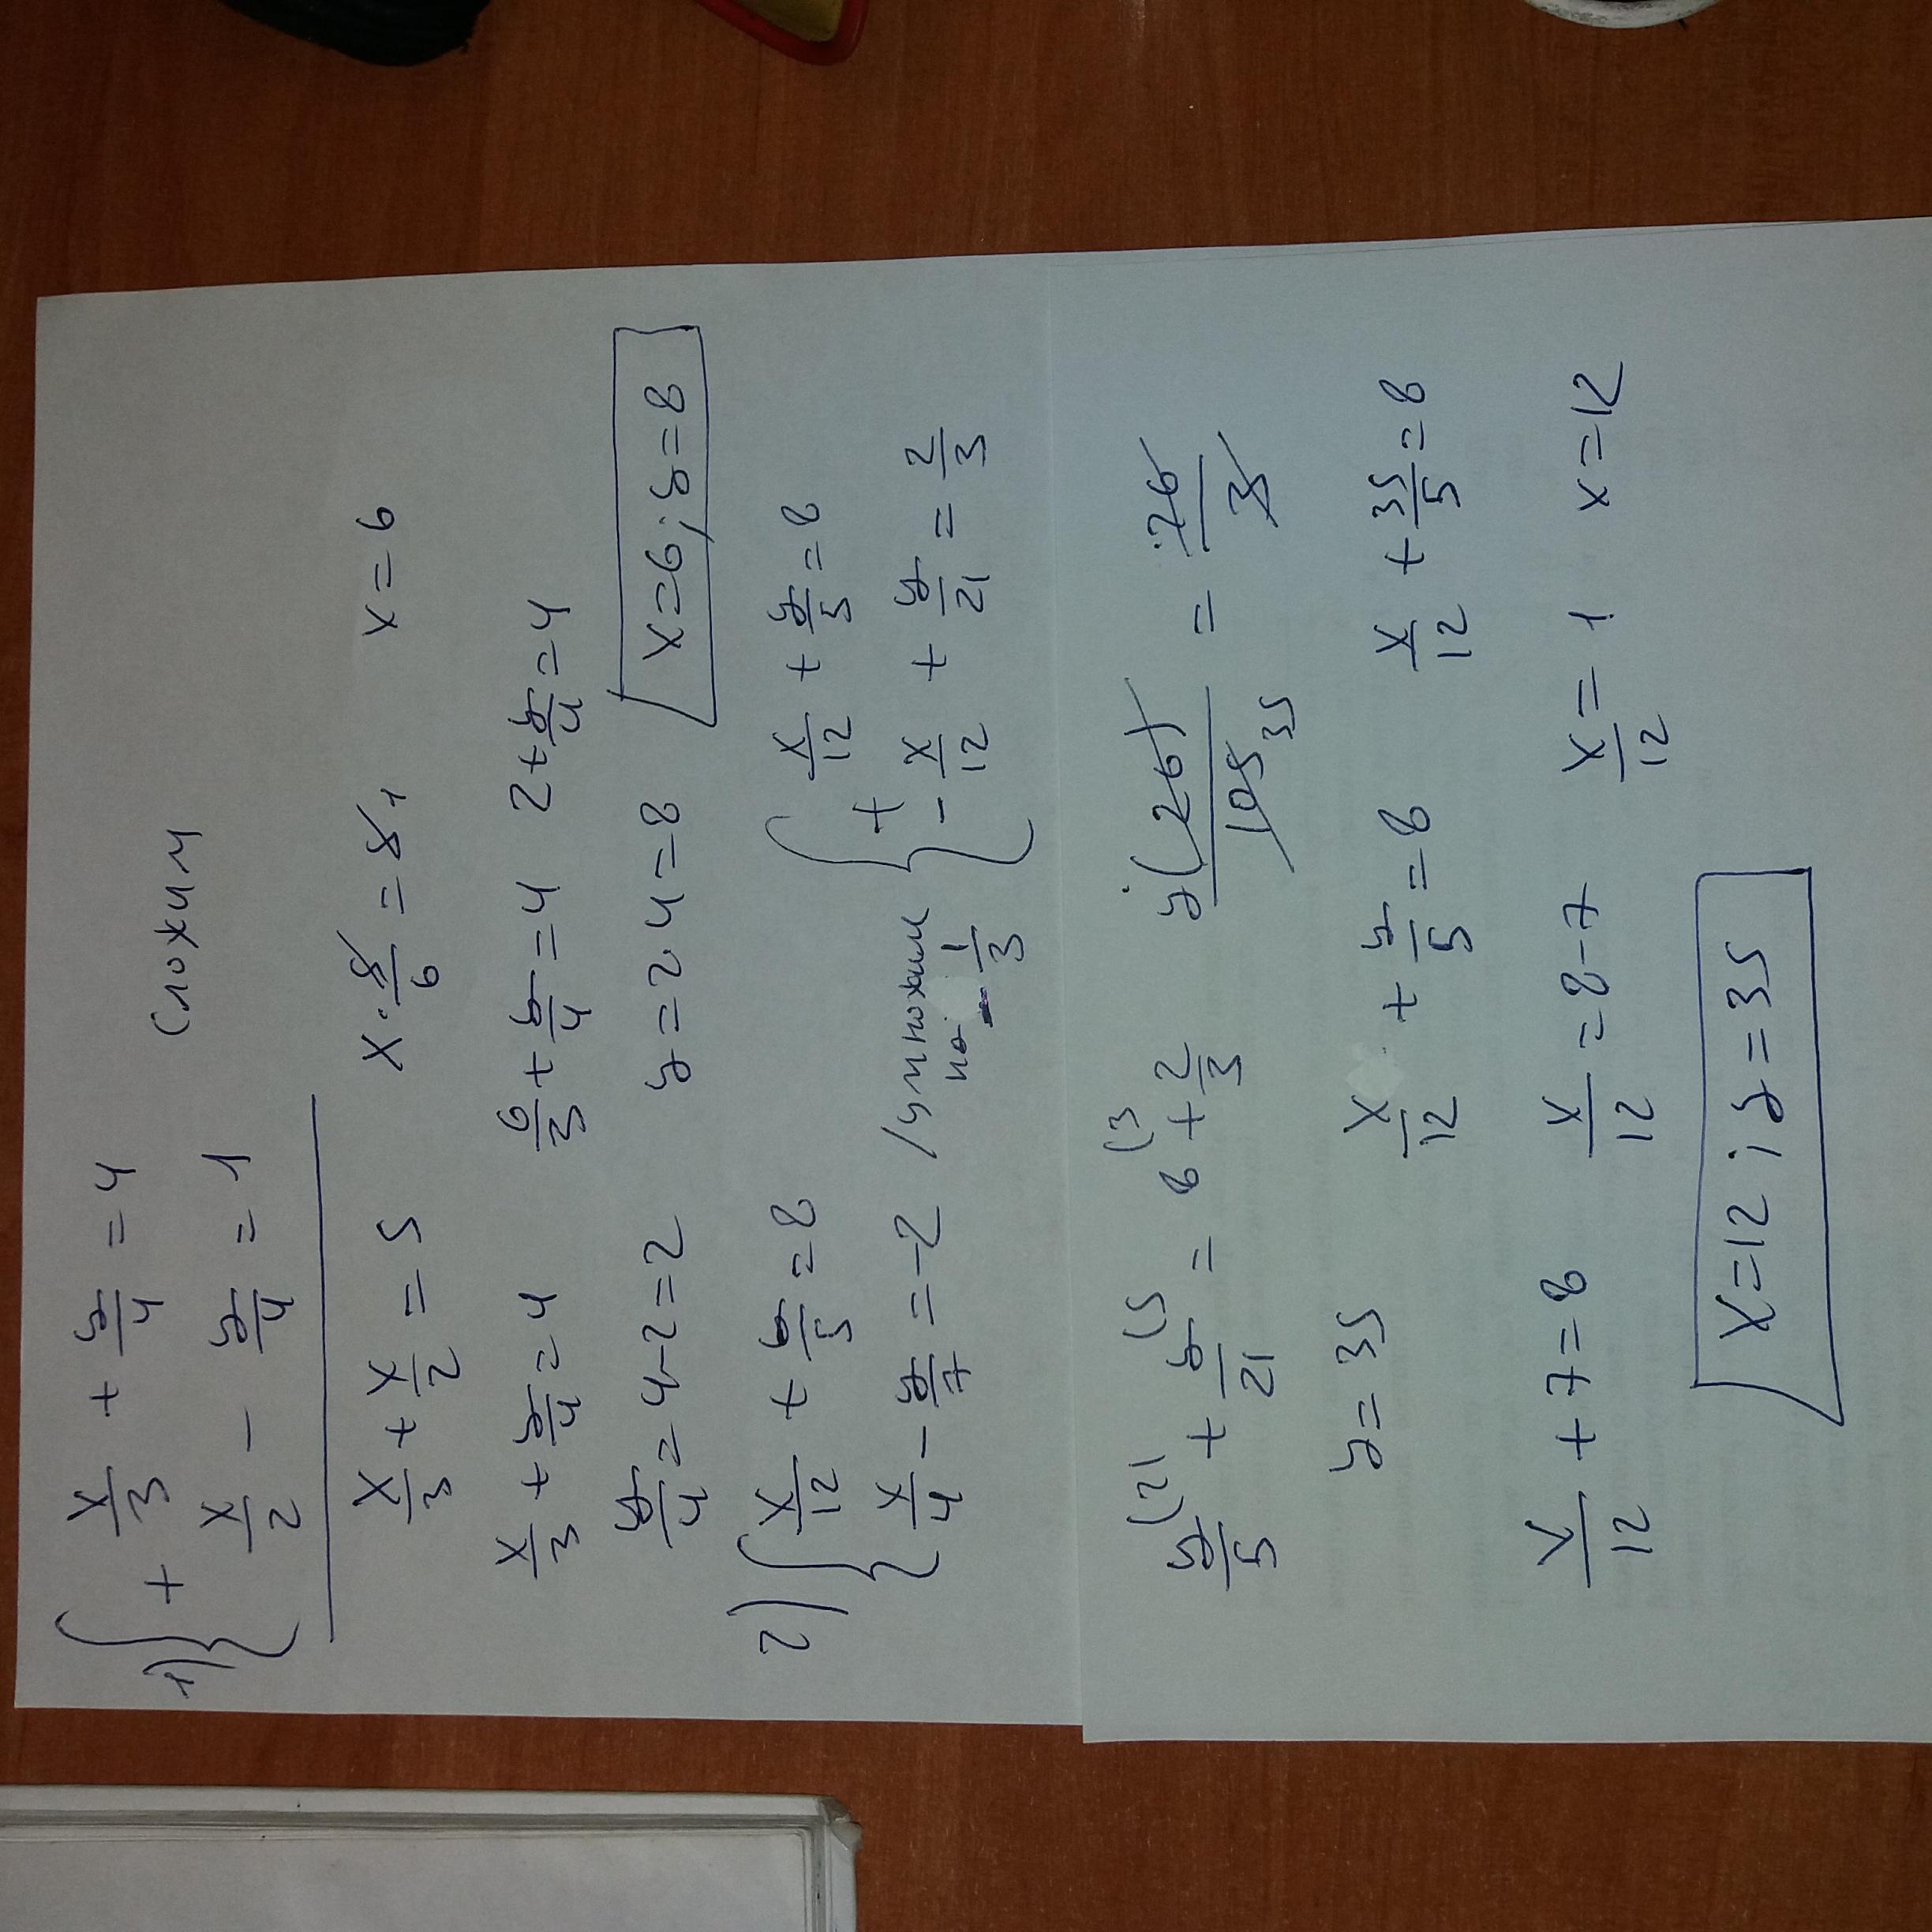 1) { + x/3 + y/4 = 4
x/2 - y/4 = 1
Сложим
x/3 + x/2 = 5 x · 5/6 = 5 1 x = 6
x/3 + y/4 = 4 6/3 + y/4 = 4 2 + y/4 = 4
y/4 = 4-2 = 2 y = 2·4 = 8 x = 6; y = 8
2) { x/12 + y/5 = 8
x/4 - y/7 = -2 / умножим на - 1/3
{ + x/12 + y/5 = 8
- x/12 + y/21 = 2/3
y/5 (21 + y/21 (5 = 8 (3 + 2/3 y(26)/105 35 = 26/3
y = 35 x/12 + y/5 = 8 x/12 + 35/5 = 8
x/12 + 7 = 8 x/12 = 8-7 x/12 = 1 x = 12
x = 12 ; y = 35